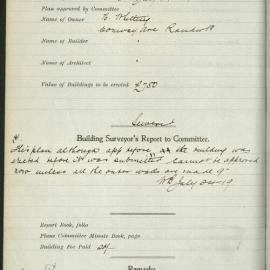 Plan approved by Committee
Name of Owner
Conway Ave Randwick
Name of Builder
Name of Architect
Value of Buildings to be erected £750
Building Surveyor's Report to Committee.
This plan although app before the building was
erected before it was submitted cannot be approved
now unless all the outer walls are made 9"
July 24-19
Report Book, folio
Plans Committee Minute Book, page
Building Fee Paid
Remarks